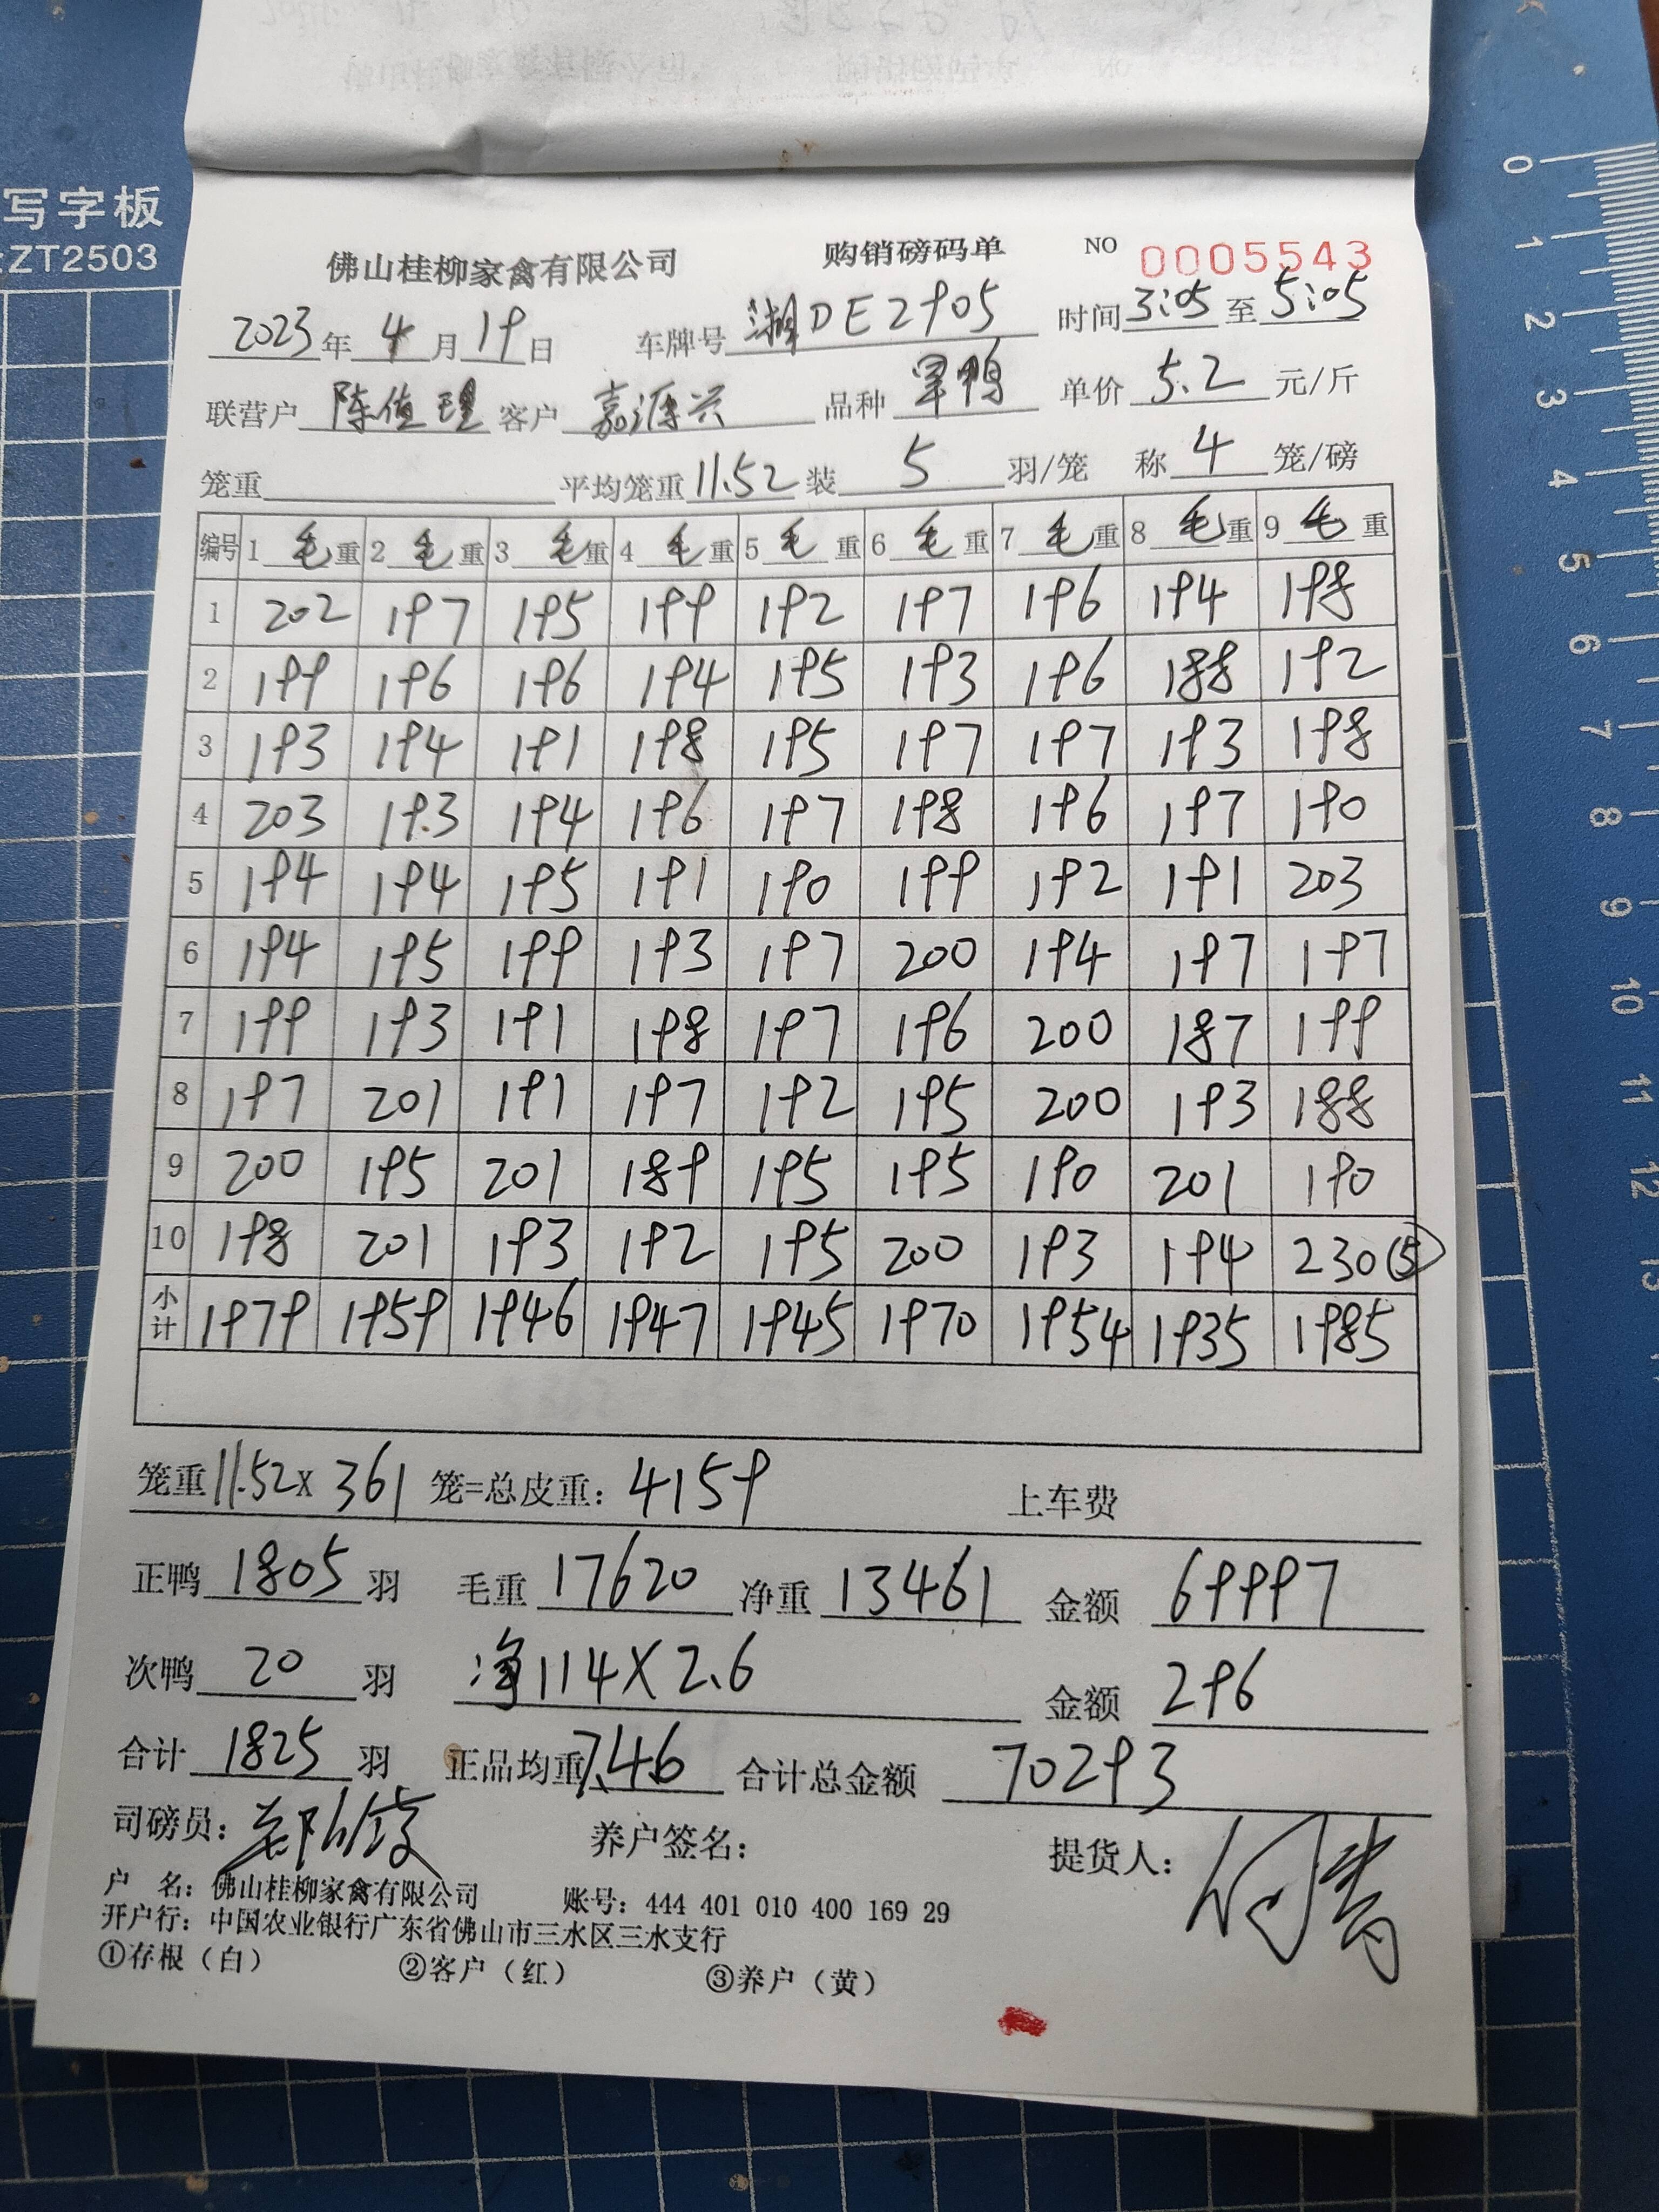 写字板
:ZT2503
佛山桂柳家禽有限公司 购销磅码单 NO 0005543
2023年4月19日 车牌号 湘DE2905 时间3:05至5:05
联营户 陈值理 客户 嘉源兴 品种 旱鸭 单价 5.2 元/斤
笼重 平均笼重11.52装 5 羽/笼 称 4 笼/磅
编号 1 毛重 2 毛重 3 毛重 4 毛重 5 毛重 6 毛重 7 毛重 8 毛重 9 毛重
1 202 197 195 199 192 197 196 194 198
2 199 196 196 194 195 193 196 188 192
3 193 194 191 198 195 197 197 193 198
4 203 193 194 196 197 198 196 197 190
5 194 194 195 191 190 199 192 191 203
6 194 195 199 193 197 200 194 197 197
7 199 193 191 198 197 196 200 187 199
8 197 201 191 197 192 195 200 193 188
9 200 195 201 189 195 195 190 201 190
10 198 201 193 192 195 200 193 194 230⑤
小计 1979 1959 1946 1947 1945 1970 1954 1935 1985
笼重11.52x 361 笼=总皮重: 4159 上车费
正鸭 1805 羽 毛重 17620 净重 13461 金额 69997
次鸭 20 羽 净114X2.6 金额 296
合计 1825 羽 正品均重7.46 合计总金额 70293
司磅员: 养户签名: 提货人:
户 名: 佛山桂柳家禽有限公司 账号: 444 401 010 400 169 29
开户行: 中国农业银行广东省佛山市三水区三水支行
①存根（白） ②客户（红） ③养户（黄）
0
1
2
3
4
5
6
7
8
9
10
11
12
13